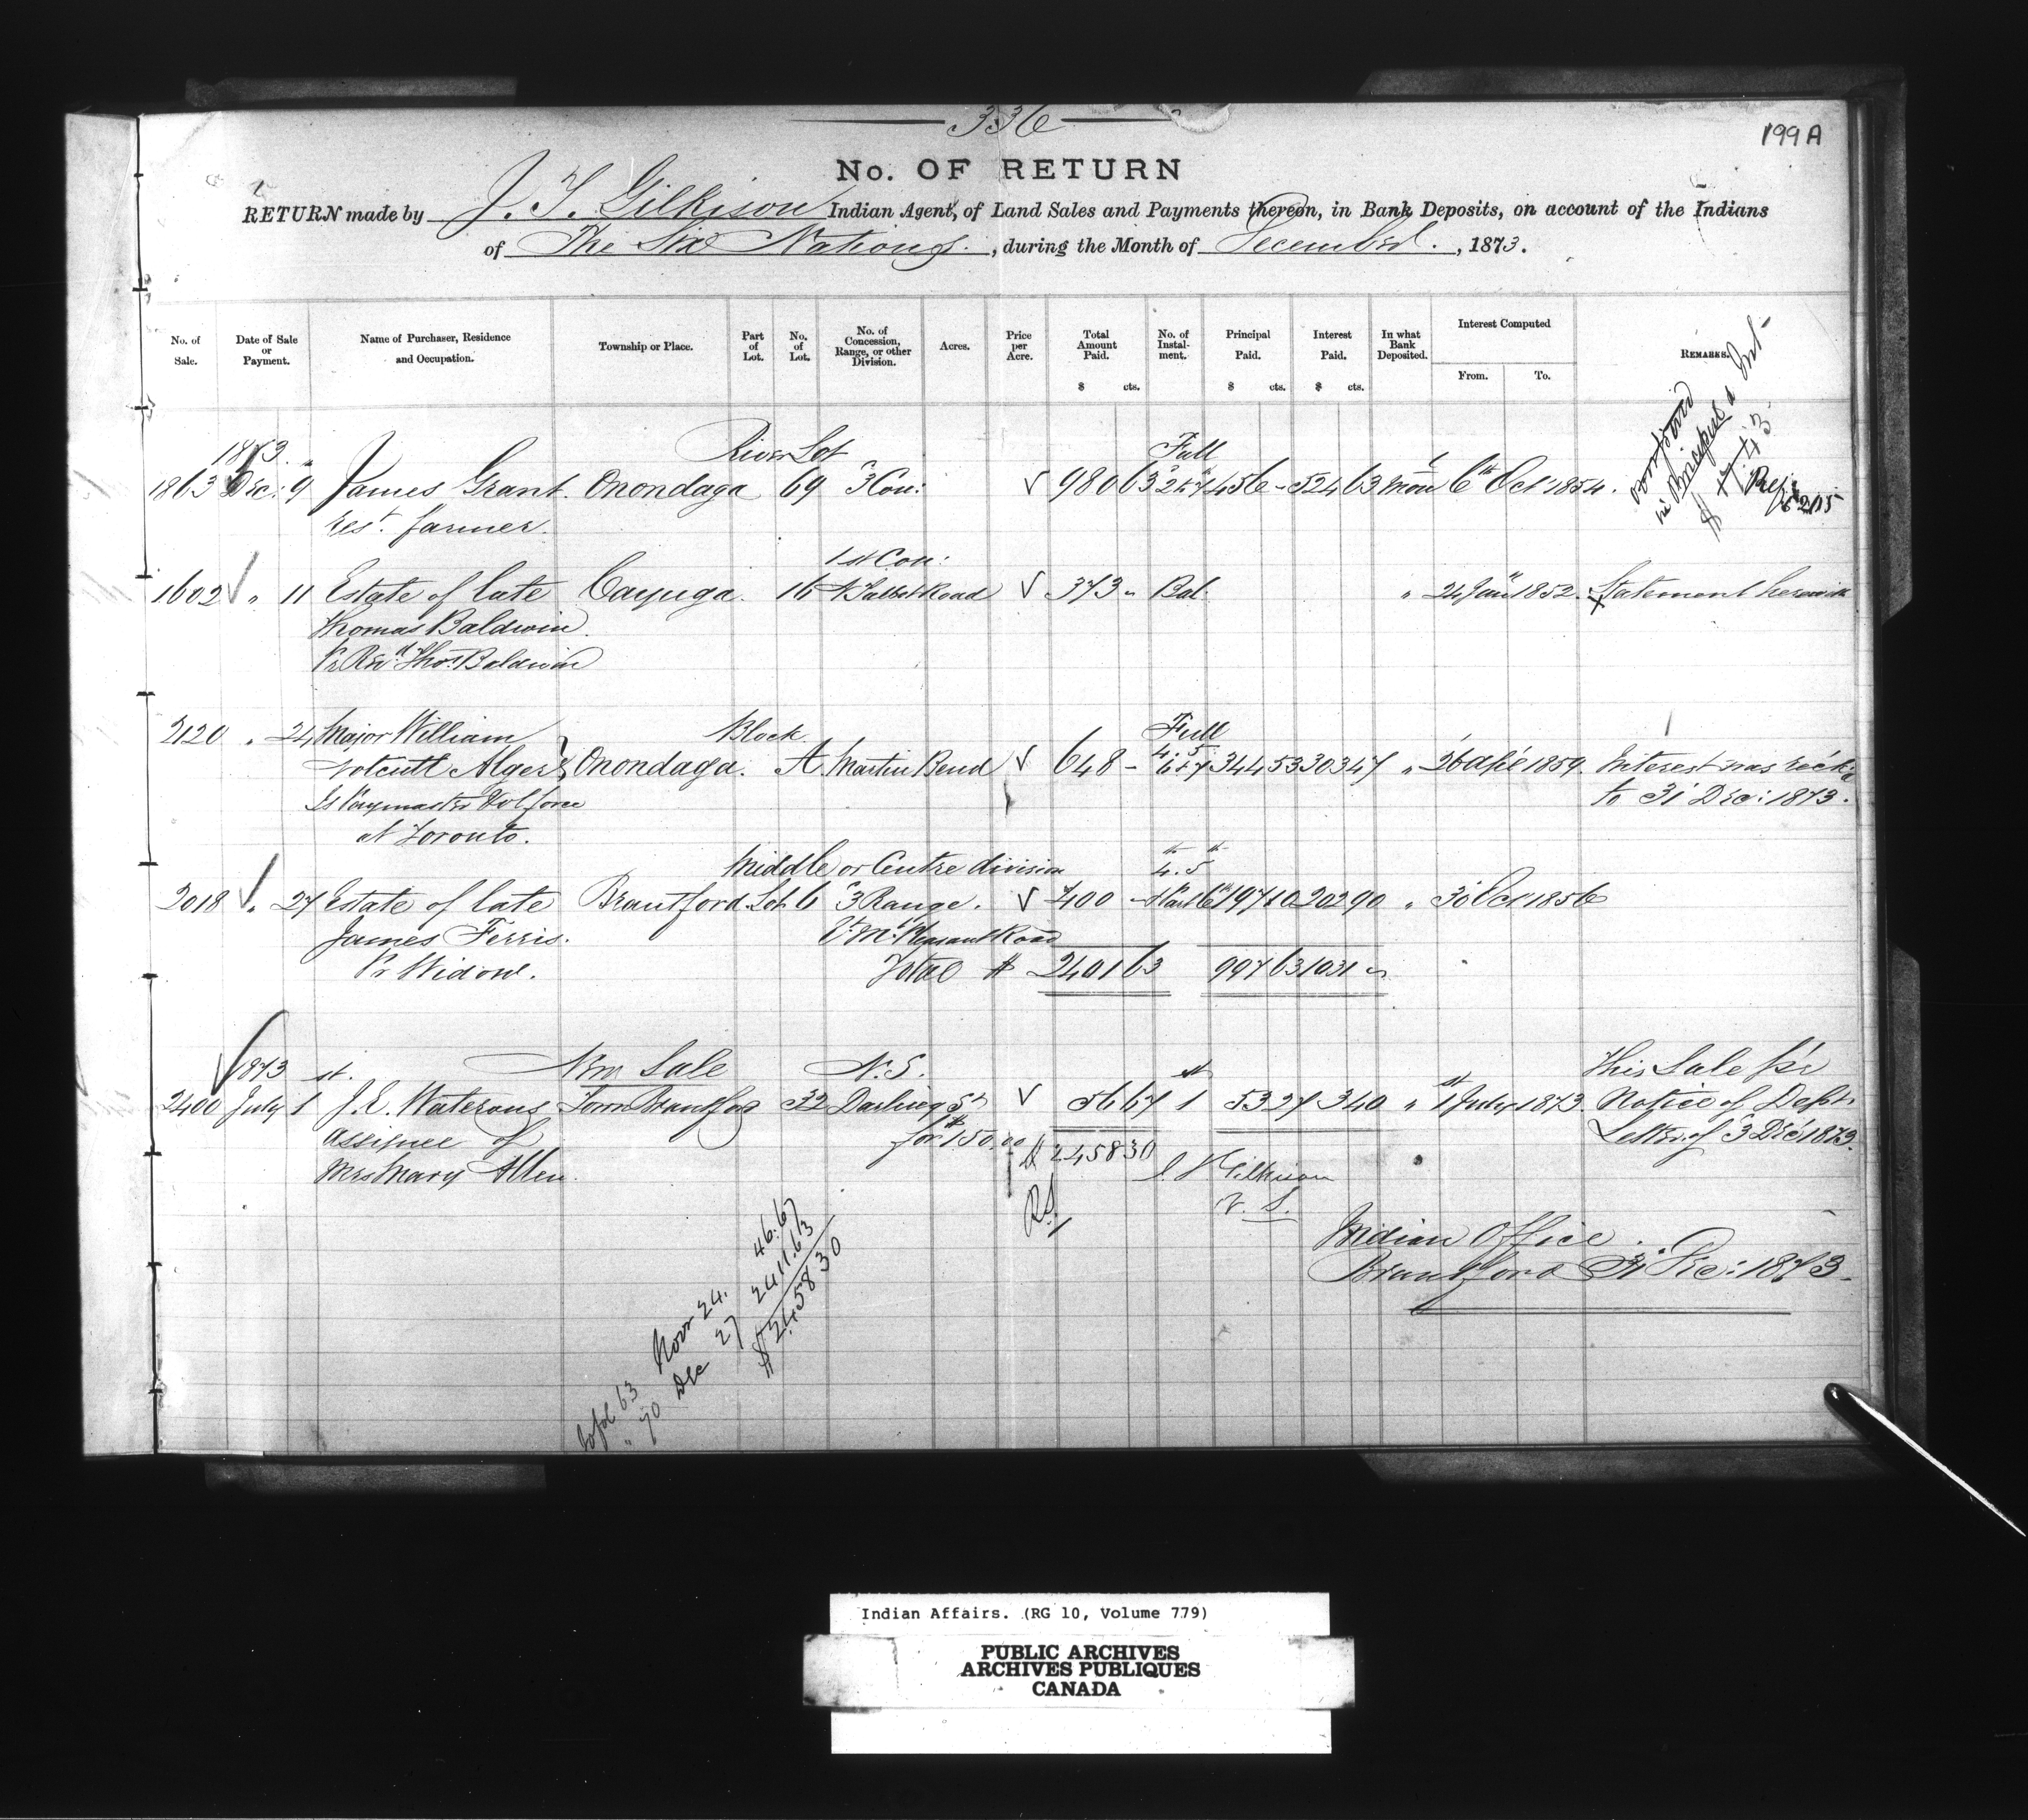 336
199A
No. OF RETURN
RETURN made by J. T. Gilkison Indian Agent, of Land Sales and Payments thereon, in Bank Deposits, on account of the Indians
of The Six Nations. , during the Month of December. , 1873.
No. of Sale. Date of Sale or Payment. Name of Purchaser, Residence and Occupation. Township or Place. Part of Lot. No. of Lot. No. of Concession, Range, or other Division. Acres. Price per Acre. Total Amount Paid. $ cts. No. of Instalment. Principal Paid. $ cts. Interest Paid. $ cts. In what Bank Deposited. Interest Computed From. To. Remarks.
1873. River Lot Full
1863 Dec: 9 James Grant. Onondaga 69 3 Con: 980 63 456 - 524 63 Mon 6th Oct 1854.
in Principal
res. farmer.
1st Con:
1602 " 11 Estate of late Cayuga. 16 N Talbot Road 373 " Bal. " 24 Jany 1852. Statement herewith
Thomas Baldwin
Pr Revd Thos Baldwin
Major William Block Full
2120 " 24 Wolcutt Alger Onondaga. A. Martin Bend 648 - 4. 5 6 & 7 344 53 303 47 " 26 Apl 1859. Interest was reck'd
Is Paymaster Vol force to 31 Dec: 1873.
at Toronto.
Middle or Centre division 4th 5th
2018 " 27 Estate of late Brantford. Lot 6 3 Range. 400 - 197 10 202 90 " 30 Oct 1856
James Ferris. Mt Pleasant Road
Pr Widow. Total $ 2401 63 997 63 1031 "
1873 New Sale N. S. This Sale pr
2400 July 1st J. E. Waterous Town Brantford 32 Darling St 56 67 1st 53 27 3 40 " 1st July 1873. Notice of Dept
assignee of for $150.00 Letter of 3 Dec 1873.
Mrs Mary Allen. $ 2458 30 J. T. Gilkison
V. S.
Indian Office.
Brantford 31 Dec: 1873.
63 Novr 24. 46.67
" 70 Dec 27 2411.63
$ 2458 30
Indian Affairs. (RG 10, Volume 779)
PUBLIC ARCHIVES
ARCHIVES PUBLIQUES
CANADA